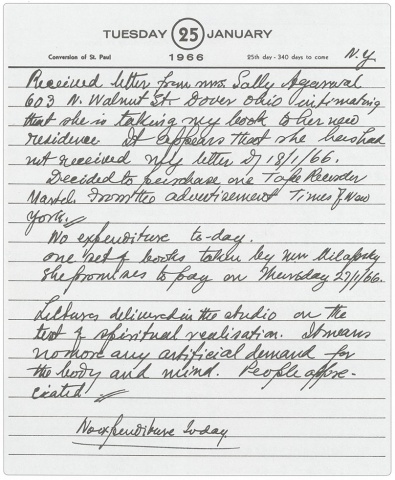 TUESDAY 25 JANUARY
1966
Conversion of St. Paul
25th day - 340 days to come
N.Y
Received letter from mrs. Sally Agarwal
603 N. Walnut St. Dover ohio intimating
that she is taking my book to her new
residence It appears that she has had
not received my letter of 18/1/66.
Decided to purchase one Tape Recorder
From the advertisement Times of New
York.
No expenditure to-day.
one set of books taken by
She promises to pay on Thursday 27/1/66.
Lectures delivered in the studio on the
test of spiritual realisation. It means
no more any artificial demand for
the body and mind. People appre-
ciated
No expenditure today